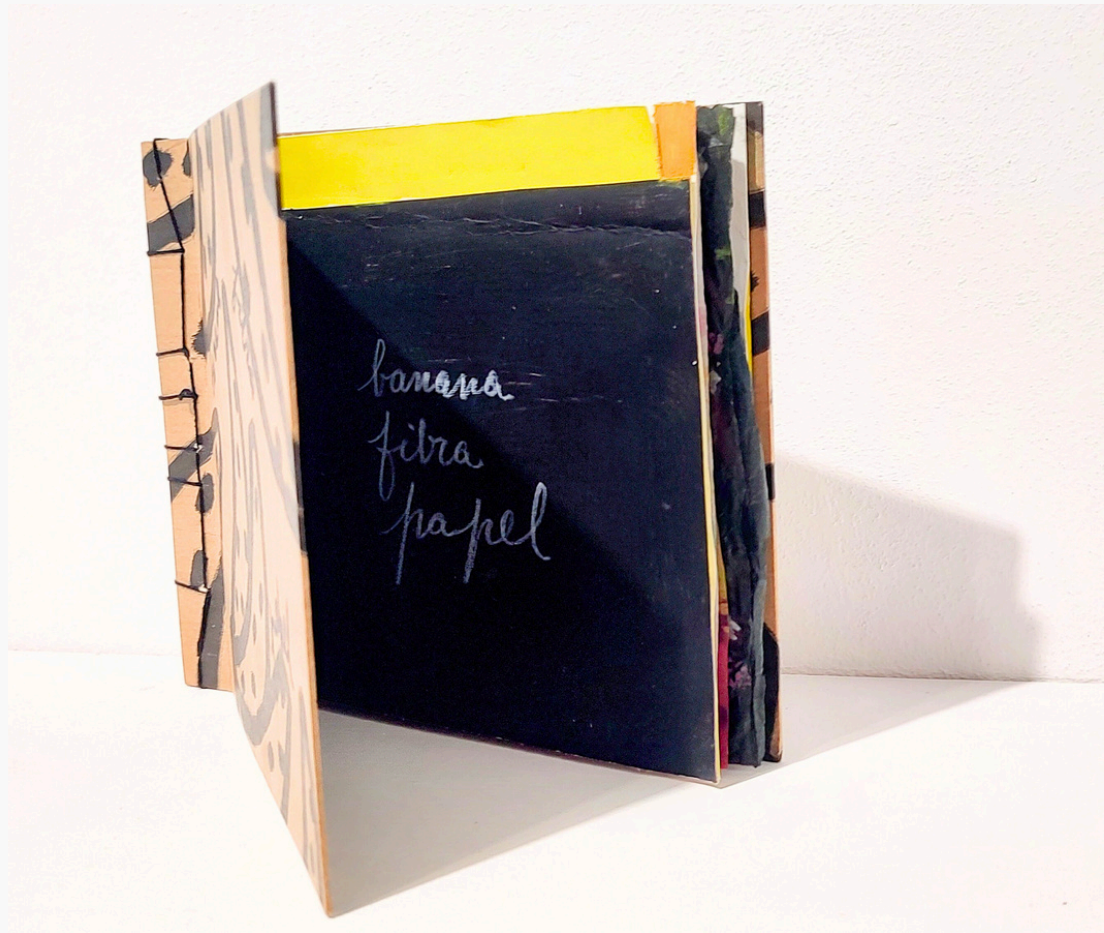 banana
fibra
papel